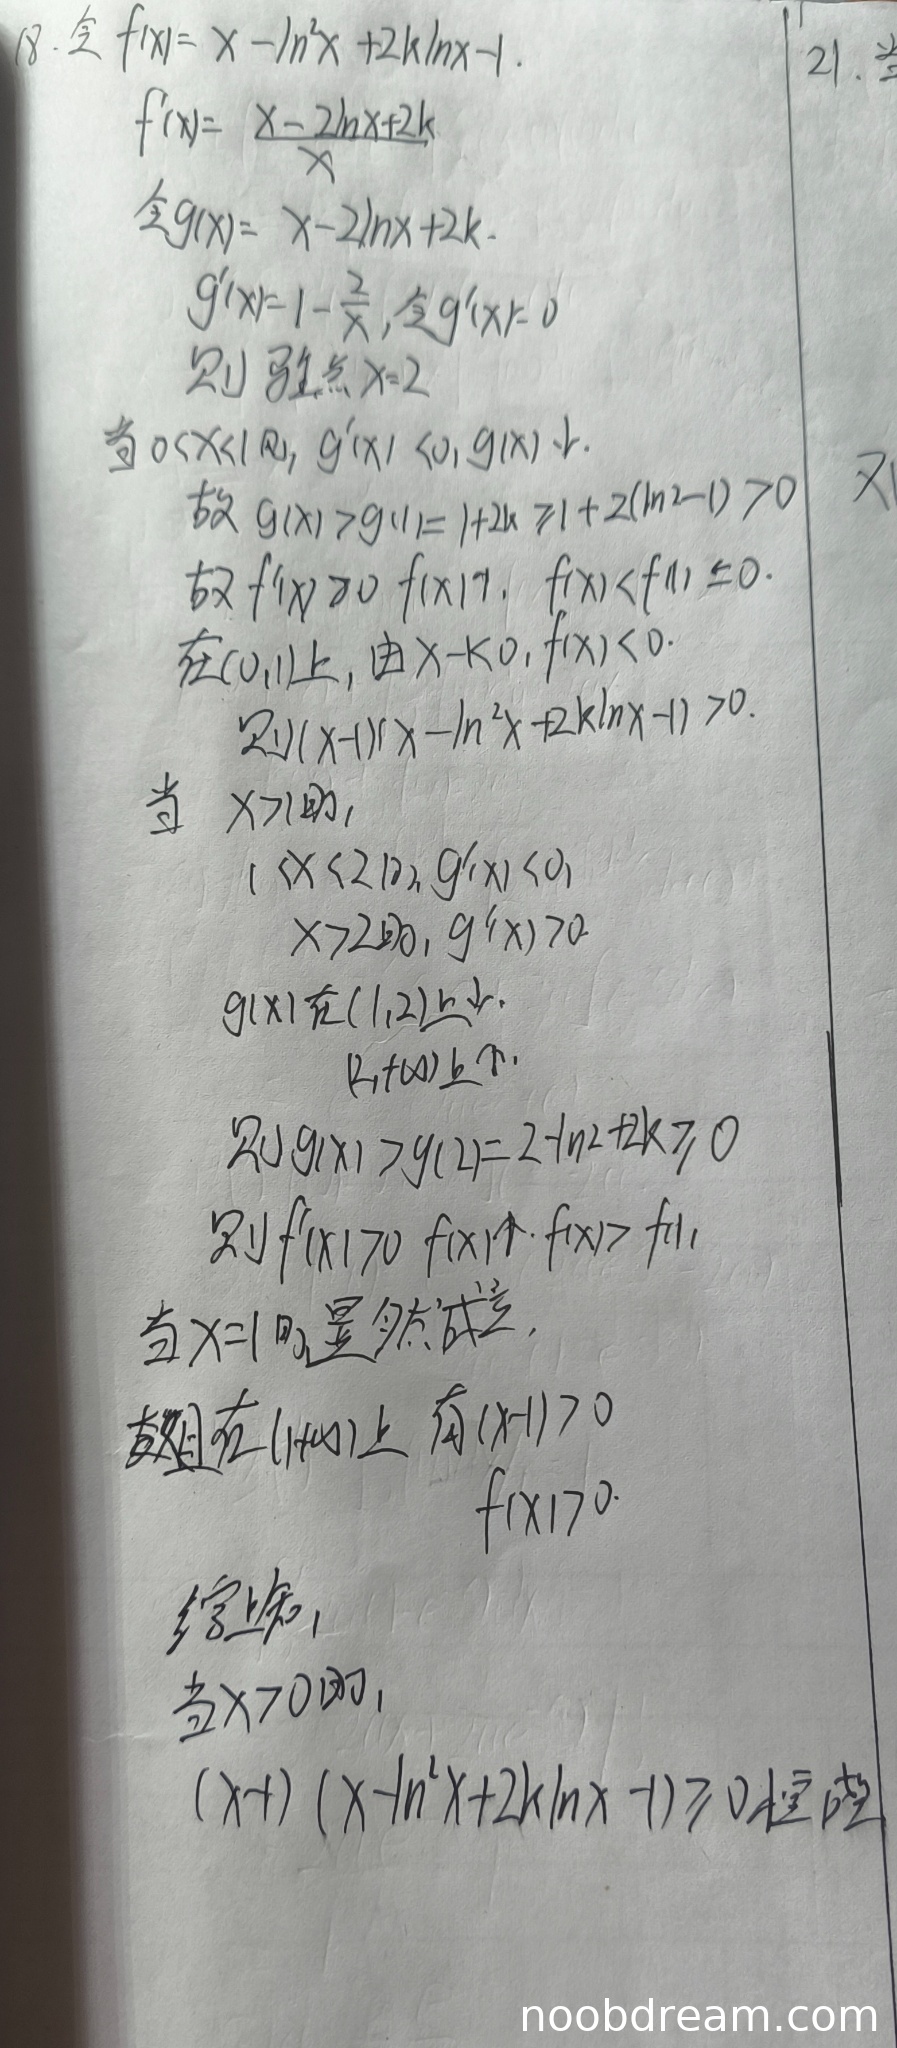 18. 令 f(x) = x - ln²x + 2klnx - 1.
21. 当
f'(x) = (x - 2lnx + 2k)/x
令 g(x) = x - 2lnx + 2k.
g'(x) = 1 - 2/x, 令 g'(x) = 0
则 驻点 x = 2
当 0 < x < 1 时, g'(x) < 0, g(x) ↓.
故 g(x) > g(1) = 1 + 2k ≥ 1 + 2(ln2 - 1) > 0
则
故 f'(x) ≥ 0 f(x) ↑. f(x) < f(1) = 0.
在 (0,1) 上, 由 x - 1 < 0, f(x) < 0.
则 (x-1)(x - ln²x + 2klnx - 1) > 0.
当 x > 1 时,
1 < x < 2 时, g'(x) < 0,
x > 2 时, g'(x) > 0
g(x) 在 (1,2) 上 ↓.
(2,+∞) 上 ↑.
则 g(x) > g(2) = 2 - ln2 + 2k ≥ 0
则 f'(x) > 0 f(x) ↑. f(x) > f(1),
当 x = 1 时, 显然成立.
在 (1,+∞) 上 有 (x-1) > 0
f(x) > 0.
综上知,
当 x > 0 时,
(x-1) (x - ln²x + 2klnx - 1) ≥ 0 恒成立
noobdream.com